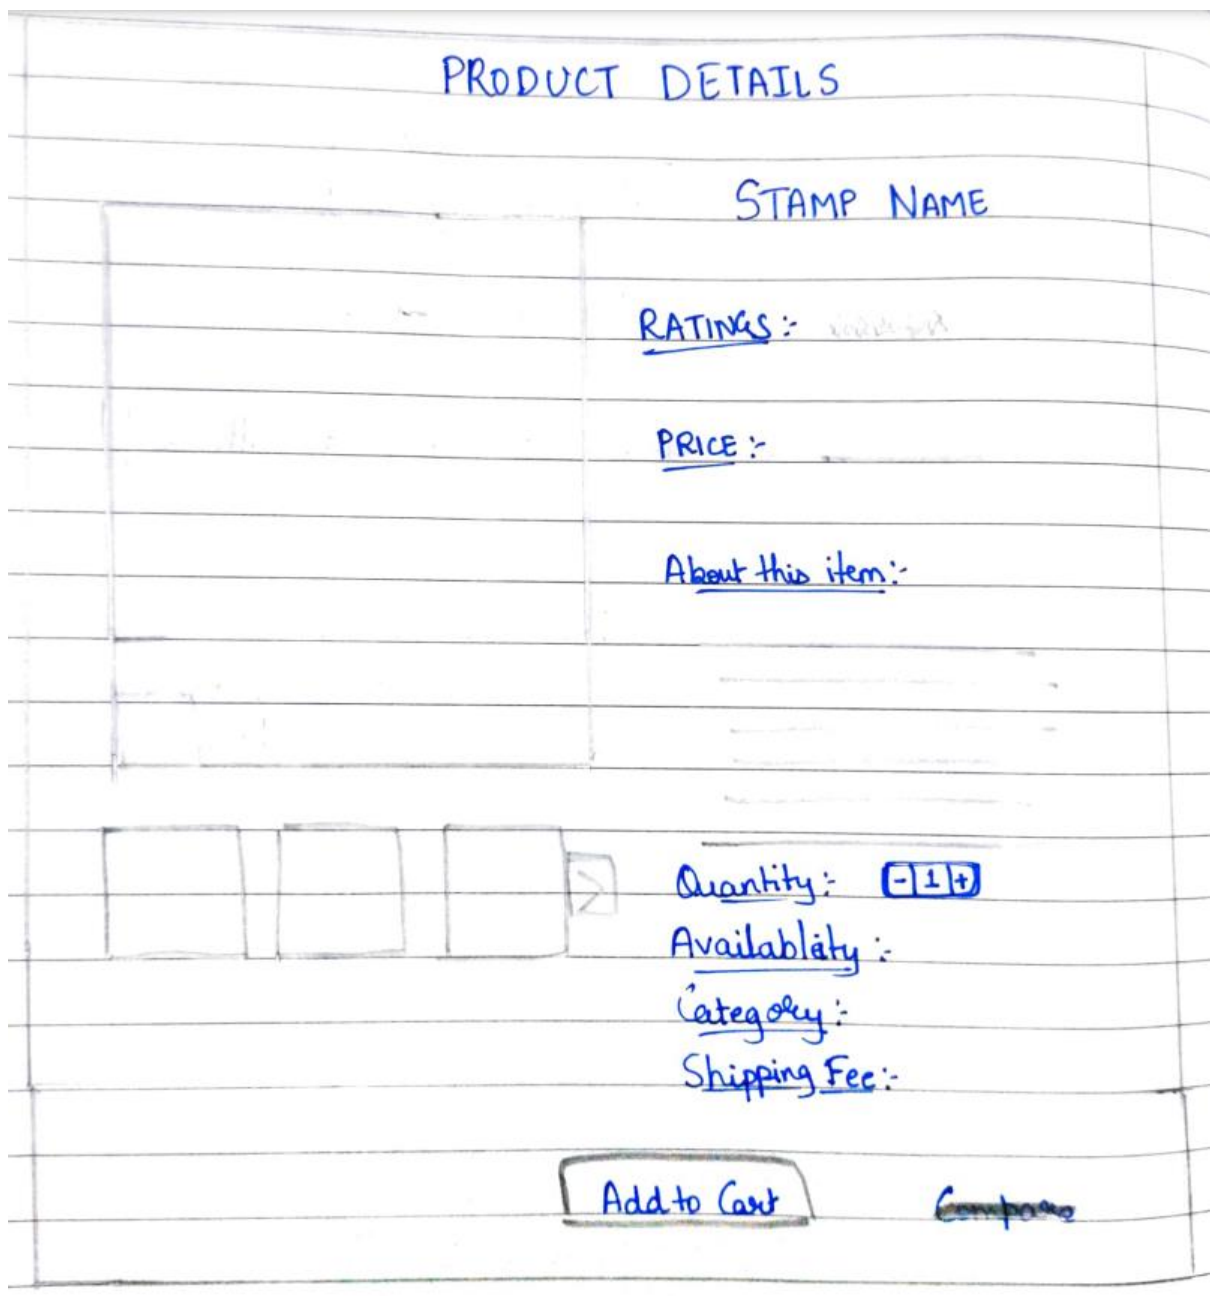 PRODUCT DETAILS
STAMP NAME
RATINGS :-
PRICE :-
About this item:-
Quantity :- - 1 +
Availablity :-
Category :-
Shipping Fee :-
>
Add to Cart
Compare